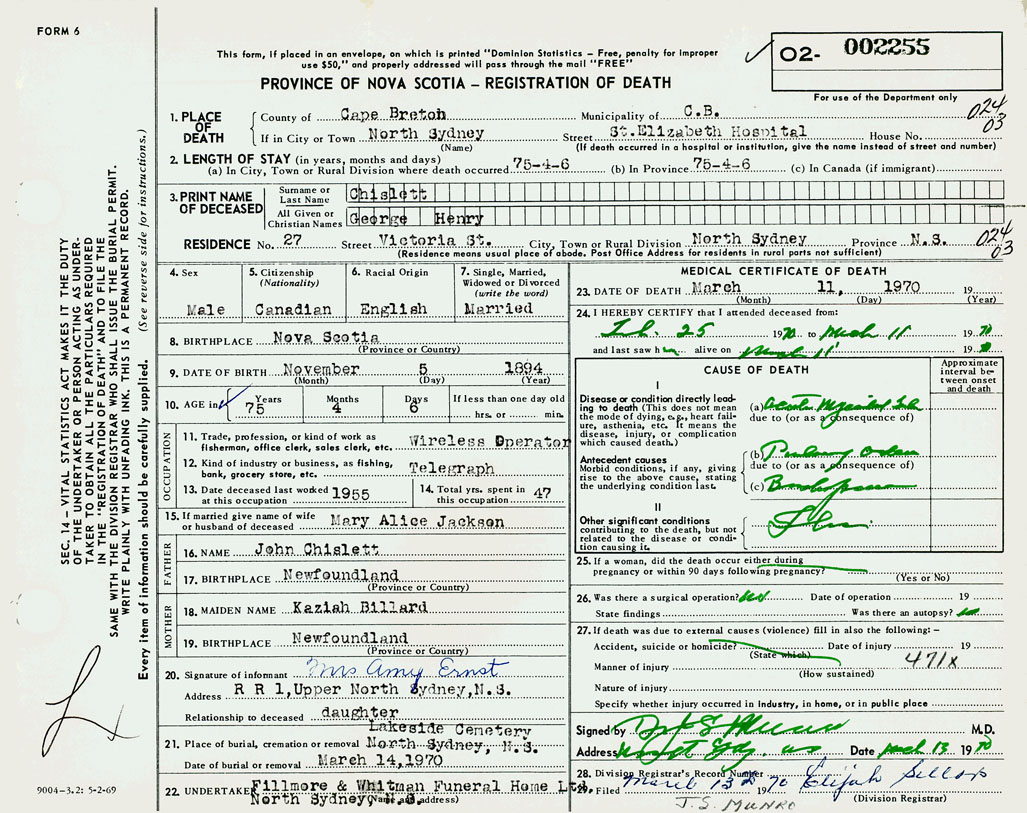 FORM 6
This form, if placed in an envelope, on which is printed "Dominion Statistics – Free, penalty for improper
use $50," and properly addressed will pass through the mail "FREE"
PROVINCE OF NOVA SCOTIA – REGISTRATION OF DEATH
02- 002255
For use of the Department only
024
03
SEC. 14 – VITAL STATISTICS ACT MAKES IT THE DUTY
OF THE UNDERTAKER OR PERSON ACTING AS UNDER-
TAKER TO OBTAIN ALL THE PARTICULARS REQUIRED
IN THE "REGISTRATION OF DEATH" AND TO FILE THE
SAME WITH THE DIVISION REGISTRAR WHO SHALL ISSUE THE BURIAL PERMIT.
WRITE PLAINLY WITH UNFADING INK. THIS IS A PERMANENT RECORD.
Every item of information should be carefully supplied. (See reverse side for instructions.)
9004-3.2: 5-2-69
1. PLACE OF DEATH
County of Cape Breton Municipality of C.B.
If in City or Town North Sydney Street St.Elizabeth Hospital House No.
(Name) (If death occurred in a hospital or institution, give the name instead of street and number)
2. LENGTH OF STAY (in years, months and days)
(a) In City, Town or Rural Division where death occurred 75-4-6 (b) In Province 75-4-6 (c) In Canada (if immigrant)
3. PRINT NAME OF DECEASED
Surname or Last Name Chislett
All Given or Christian Names George Henry
RESIDENCE No. 27 Street Victoria St. City, Town or Rural Division North Sydney Province N.S. 024 03
(Residence means usual place of abode. Post Office Address for residents in rural parts not sufficient)
4. Sex
Male
5. Citizenship (Nationality)
Canadian
6. Racial Origin
English
7. Single, Married, Widowed or Divorced (write the word)
Married
8. BIRTHPLACE Nova Scotia
(Province or Country)
9. DATE OF BIRTH November 5 1894
(Month) (Day) (Year)
10. AGE in Years Months Days If less than one day old
75 4 6 hrs. or min.
OCCUPATION
11. Trade, profession, or kind of work as fisherman, office clerk, sales clerk, etc. Wireless Operator
12. Kind of industry or business, as fishing, bank, grocery store, etc. Telegraph
13. Date deceased last worked at this occupation 1955
14. Total yrs. spent in this occupation 47
15. If married give name of wife or husband of deceased Mary Alice Jackson
FATHER
16. NAME John Chislett
17. BIRTHPLACE Newfoundland
(Province or Country)
MOTHER
18. MAIDEN NAME Kaziah Billard
19. BIRTHPLACE Newfoundland
(Province or Country)
20. Signature of informant Mrs Amy Ernst
Address R R 1,Upper North Sydney,N.S.
Relationship to deceased daughter
Lakeside Cemetery
21. Place of burial, cremation or removal North Sydney, N.S.
Date of burial or removal March 14,1970
22. UNDERTAKER Fillmore & Whitman Funeral Home Lt
North Sydney, N.S.
(Name and address)
MEDICAL CERTIFICATE OF DEATH
23. DATE OF DEATH March 11, 1970 19
(Month) (Day) (Year)
24. I HEREBY CERTIFY that I attended deceased from:
Feb. 25 1970 to March 11 1970
and last saw h alive on March 11 19
CAUSE OF DEATH
Approximate interval between onset and death
I
Disease or condition directly leading to death (This does not mean the mode of dying, e.g., heart failure, asthenia, etc. It means the disease, injury, or complication which caused death.)
(a)
due to (or as a consequence of)
Antecedent causes
Morbid conditions, if any, giving rise to the above cause, stating the underlying condition last.
(b)
due to (or as a consequence of)
(c)
II
Other significant conditions
contributing to the death, but not related to the disease or condition causing it.
25. If a woman, did the death occur either during
pregnancy or within 90 days following pregnancy?
(Yes or No)
26. Was there a surgical operation? Date of operation 19
State findings Was there an autopsy?
27. If death was due to external causes (violence) fill in also the following: –
Accident, suicide or homicide? Date of injury 19
(State which)
471x
Manner of injury
(How sustained)
Nature of injury
Specify whether injury occurred in Industry, in home, or in public place
Signed by M.D.
Address Date March 13 1970
28. Division Registrar's Record Number
29. Filed March 13 1970 Elijah
(Division Registrar)
J.S. MUNRO